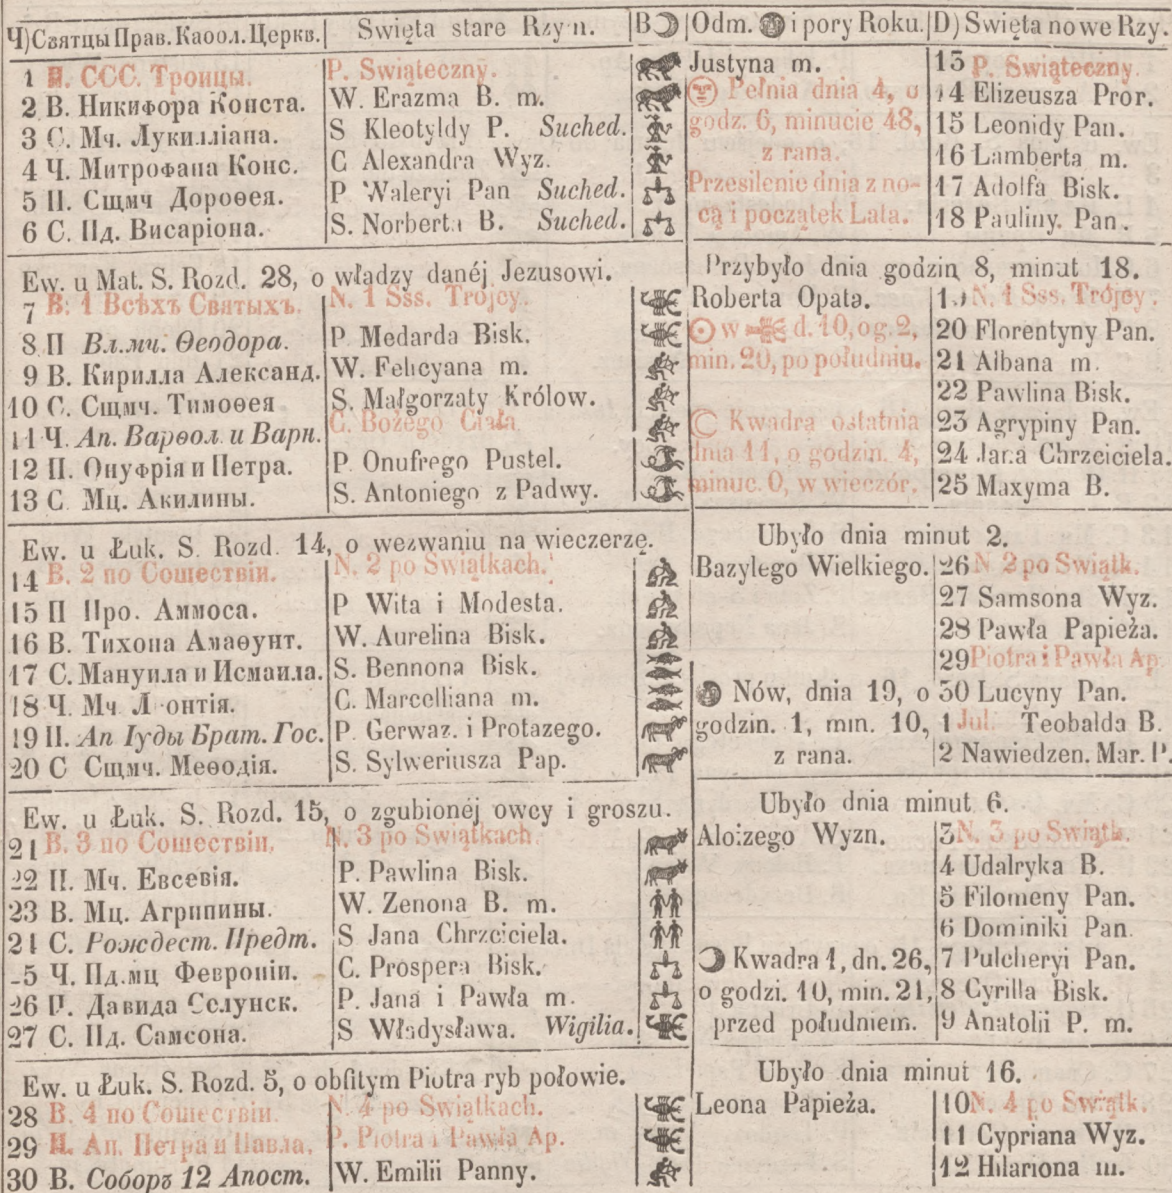 Ч) Святцы Прав. Каѳол. Церкв. Święta stare Rzyn. B☽ Odm. i pory Roku. D) Święta nowe Rzy.
1 П. ССС. Троицы. P. Swiąteczny. Justyna m. 13 P. Swiąteczny.
2 В. Никифора Конста. W. Erazma B. m. Pełnia dnia 4, o 14 Elizeusza Pror.
3 С. Мч. Лукилліана. S Kleotyldy P. Suched. godz. 6, minucie 48, 15 Leonidy Pan.
4 Ч. Митрофана Конс. C Alexandra Wyz. z rana. 16 Lamberta m.
5 П. Сщмч Дороѳея. P Waleryi Pan Suched. Przesilenie dnia z no- 17 Adolfa Bisk.
6 С. Пд. Висаріона. S. Norberta B. Suched. cą i początek Lata. 18 Pauliny. Pan.
Ew. u Mat. S. Rozd. 28, o władzy danéj Jezusowi. Przybyło dnia godzin 8, minut 18.
7 В: 1 Всѣхъ Святыхъ. N. 1 Sss. Trójcy. Roberta Opata. 19 N. 1 Sss. Trójcy.
8 П Вл.мч. Ѳеодора. P Medarda Bisk. ☉ w d. 10, o g. 2, 20 Florentyny Pan.
9 В. Кирилла Александ. W. Felicyana m. min. 20, po południu. 21 Albana m.
10 С. Сщмч. Тимоѳея S. Małgorzaty Królow. 22 Pawlina Bisk.
11 Ч. Ап. Варѳол. и Варн. C. Bożego Ciała Kwadra ostatnia 23 Agrypiny Pan.
12 П. Онуфрія и Петра. P. Onufrego Pustel. dnia 11, o godzin. 4, 24 Jana Chrzciciela.
13 С. Мц. Акилины. S. Antoniego z Padwy. minuc. 0, w wieczór. 25 Maxyma B.
Ew. u Łuk. S. Rozd. 14, o wezwaniu na wieczerzę. Ubyło dnia minut 2.
14 В. 2 по Сошествіи. N. 2 po Swiątkach. Bazylego Wielkiego. 26 N 2 po Swiątk.
15 П Про. Аммоса. P Wita i Modesta. 27 Samsona Wyz.
16 В. Тихона Амаѳунт. W. Aurelina Bisk. 28 Pawła Papieża.
17 С. Мануила и Исмаила. S. Bennona Bisk. 29 Piotra i Pawła Ap
18 Ч. Мч. Л онтія. C. Marcelliana m. Nów, dnia 19, o 30 Lucyny Pan.
19 П. Ап Іуды Брат. Гос. P. Gerwaz. i Protazego. godzin. 1, min. 10, 1 Jul. Teobalda B.
20 С Сщмч. Меѳодія. S. Sylweriusza Pap. z rana. 2 Nawiedzen. Mar. P.
Ew. u Łuk. S. Rozd. 15, o zgubionéj owcy i groszu. Ubyło dnia minut 6.
21 В. 3 по Сошествіи. N. 3 po Swiątkach. Aloizego Wyzn. 3 N. 3 po Swiątk.
22 П. Мч. Евсевія. P. Pawlina Bisk. 4 Udalryka B.
23 В. Мц. Агрипины. W. Zenona B. m. 5 Filomeny Pan.
24 С. Рождест. Предт. S Jana Chrzciciela. 6 Dominiki Pan.
25 Ч. Пд.мц Февроніи. C. Prospera Bisk. ☽ Kwadra 1, dn. 26, 7 Pulcheryi Pan.
26 П. Давида Селунск. P. Jana i Pawła m. o godzi. 10, min. 21, 8 Cyrilla Bisk.
27 С. Пд. Самсона. S Władysława. Wigilia. przed południem. 9 Anatolii P. m.
Ew. u Łuk. S. Rozd. 5, o obfitym Piotra ryb połowie. Ubyło dnia minut 16.
28 В. 4 по Сошествіи. N. 4 po Swiątkach. Leona Papieża. 10 N. 4 po Swiątk.
29 П. Ап. Петра и Павла, P. Piotra i Pawła Ap. 11 Cypriana Wyz.
30 В. Соборъ 12 Апост. W. Emilii Panny. 12 Hilariona m.